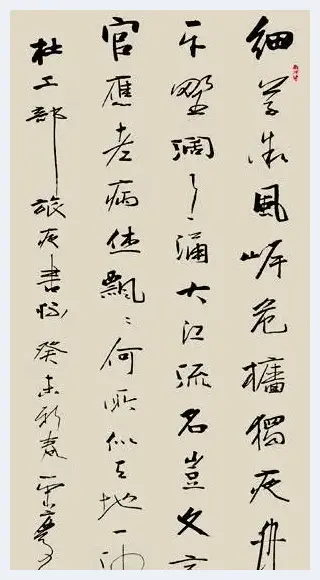 細草微風岸危檣獨夜舟
平野濶月涌大江流名豈文章
官應老病休飄〻何所似天地一沙
杜工部旅夜書懷癸未新春